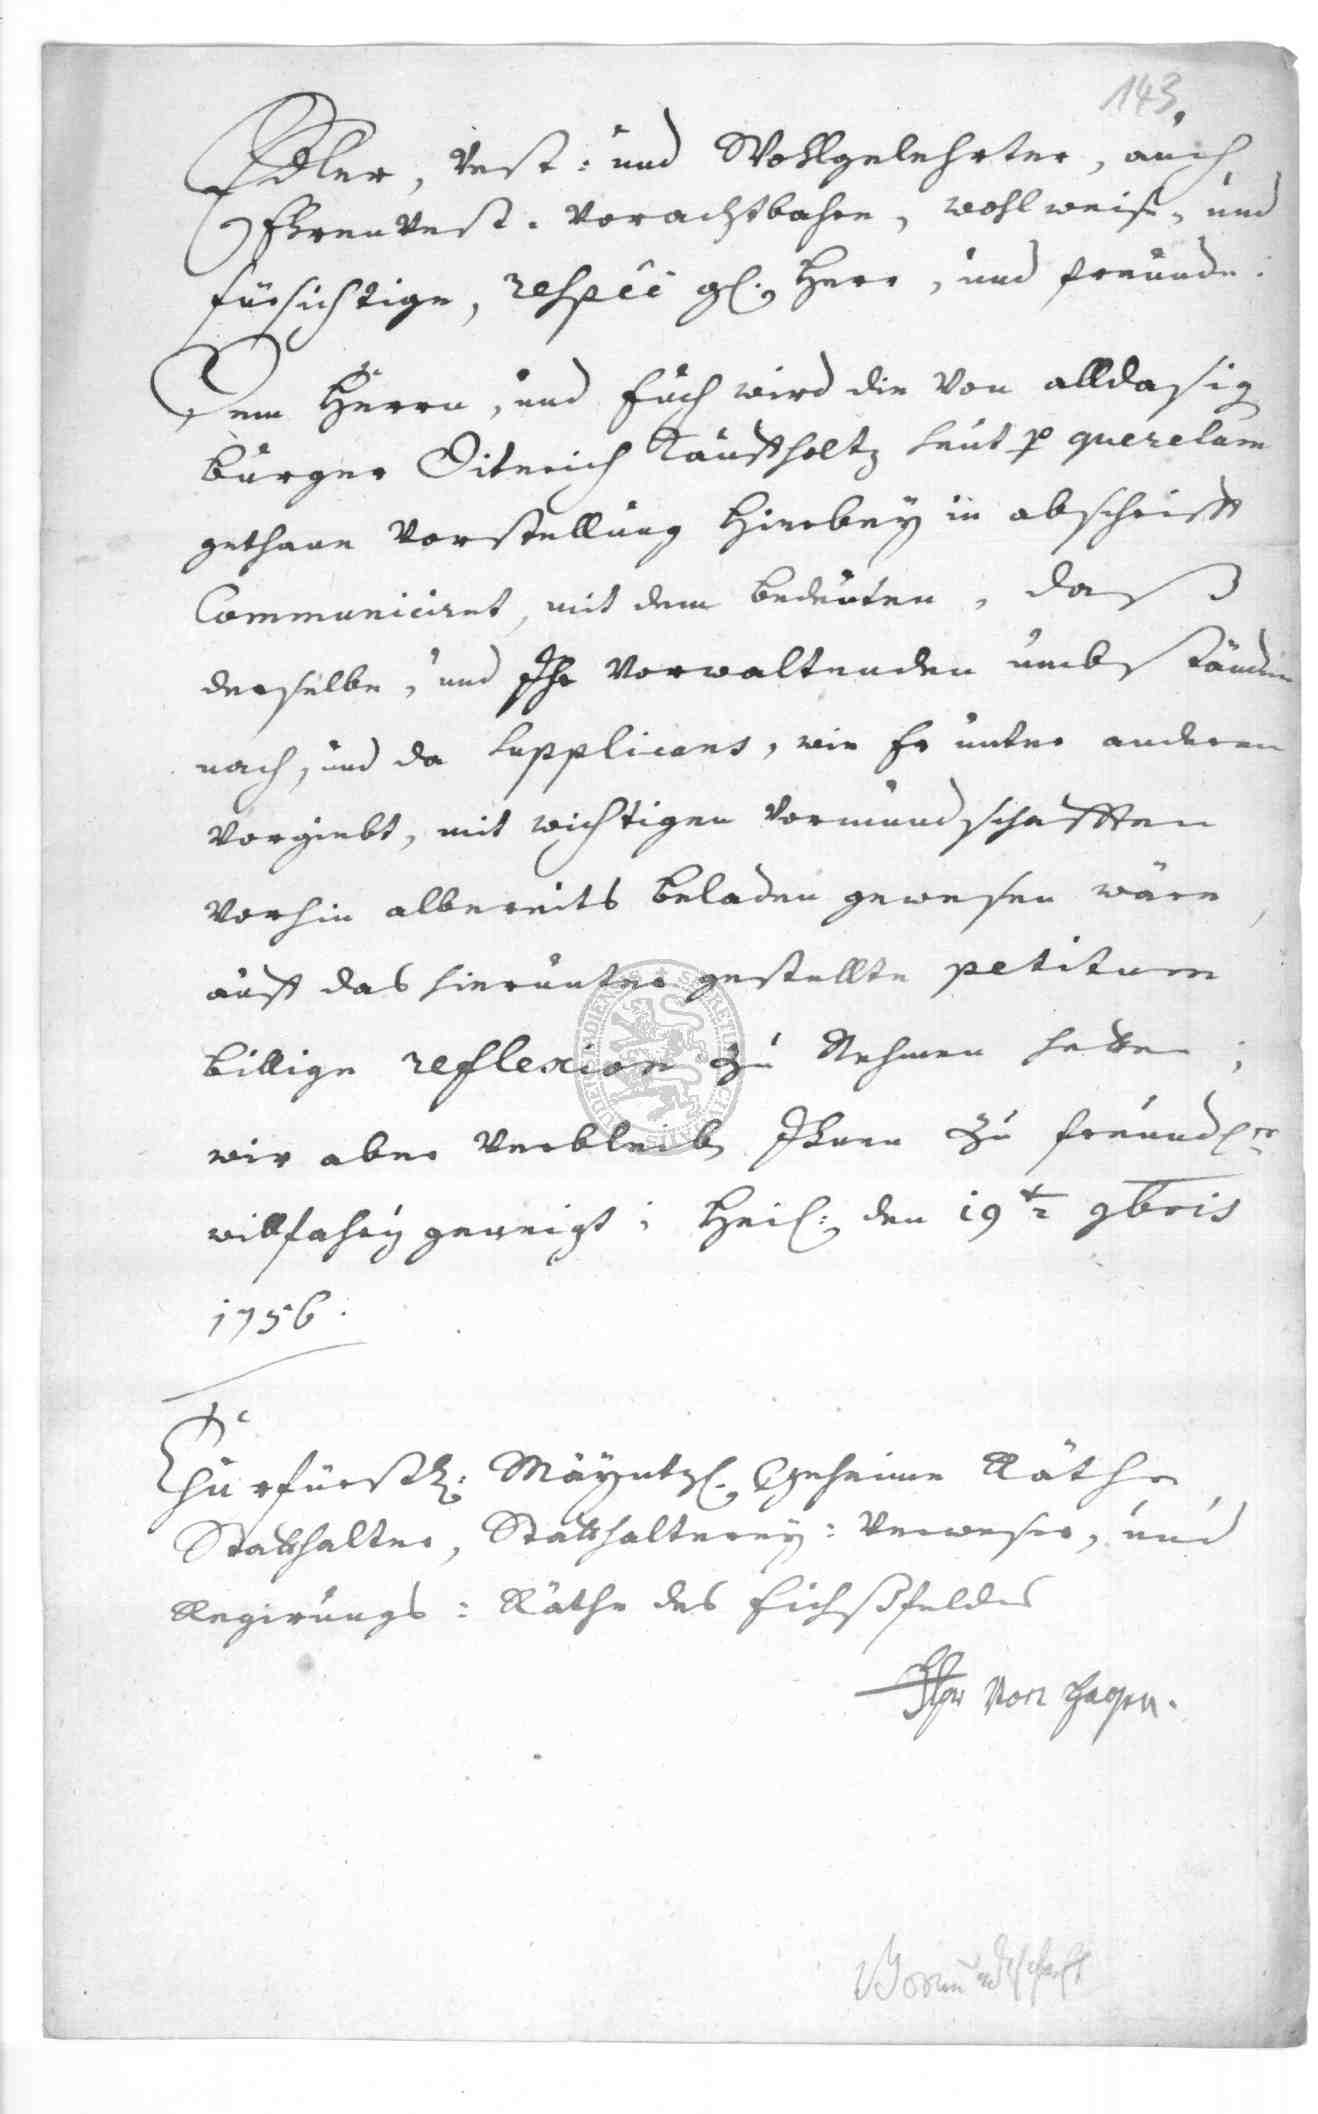 143.
Edler, Vest- und Wohlgelehrter, auch
Ehrenvest- Vorachtbahre, wohlweise, und
fürsichtige, respec̄ gl. Herr, und freunde.
Dem Herrn, und Euch wird die von alldasig
burger Diterich Kaufholtz heut p querelam
gethane Vorstellung hierbey in abschrifft
Communiciret, mit dem bedeuten, daß
derselbe, und Ihr Vorwaltenden umbständen
nach, und da supplicans, wie Er unter anderen
vorgiebt, mit wichtigen Vormundschafften
vorhin albereits beladen gewesen wäre,
auff das hierunter gestellte petitum
billige reflexion zu Nehmen hetten;
wir aber verbleiben Ihnen zu freundl
willfahrg geneigt; Heil: den 19t 9bris
1756.
Churfürstl: Mäyntzl. Geheime Räthe
Statthalter, Statthalterey-Verweser, und
Regirungs-Räthe des Eichßfeldes
von Hagen.
Vormundschaft